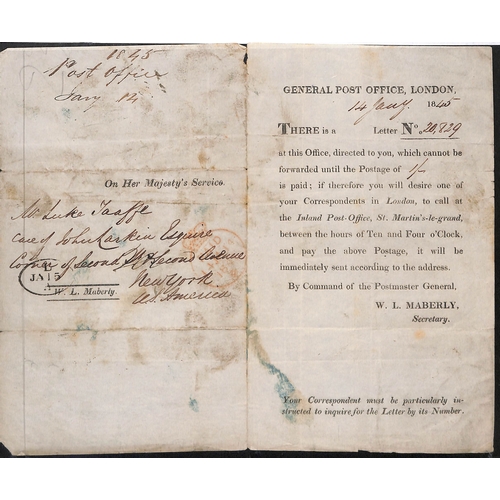 1845
Post Office
Jany 14
On Her Majesty's Service.
Mr Luke Taaffe
care of John Larkin Esquire
Corner of Second St & Second Avenue
New York
U.S. America
L
JA 15
A
W. L. Maberly.
GENERAL POST OFFICE, LONDON,
14 Jany. 1845
THERE is a Letter No. 20,829
at this Office, directed to you, which cannot be
forwarded until the Postage of 1/-
is paid; if therefore you will desire one of
your Correspondents in London, to call at
the Inland Post-Office, St. Martin's-le-grand,
between the hours of Ten and Four o'Clock,
and pay the above Postage, it will be
immediately sent according to the address.
By Command of the Postmaster General,
W. L. MABERLY,
Secretary.
Your Correspondent must be particularly in-
structed to inquire for the Letter by its Number.